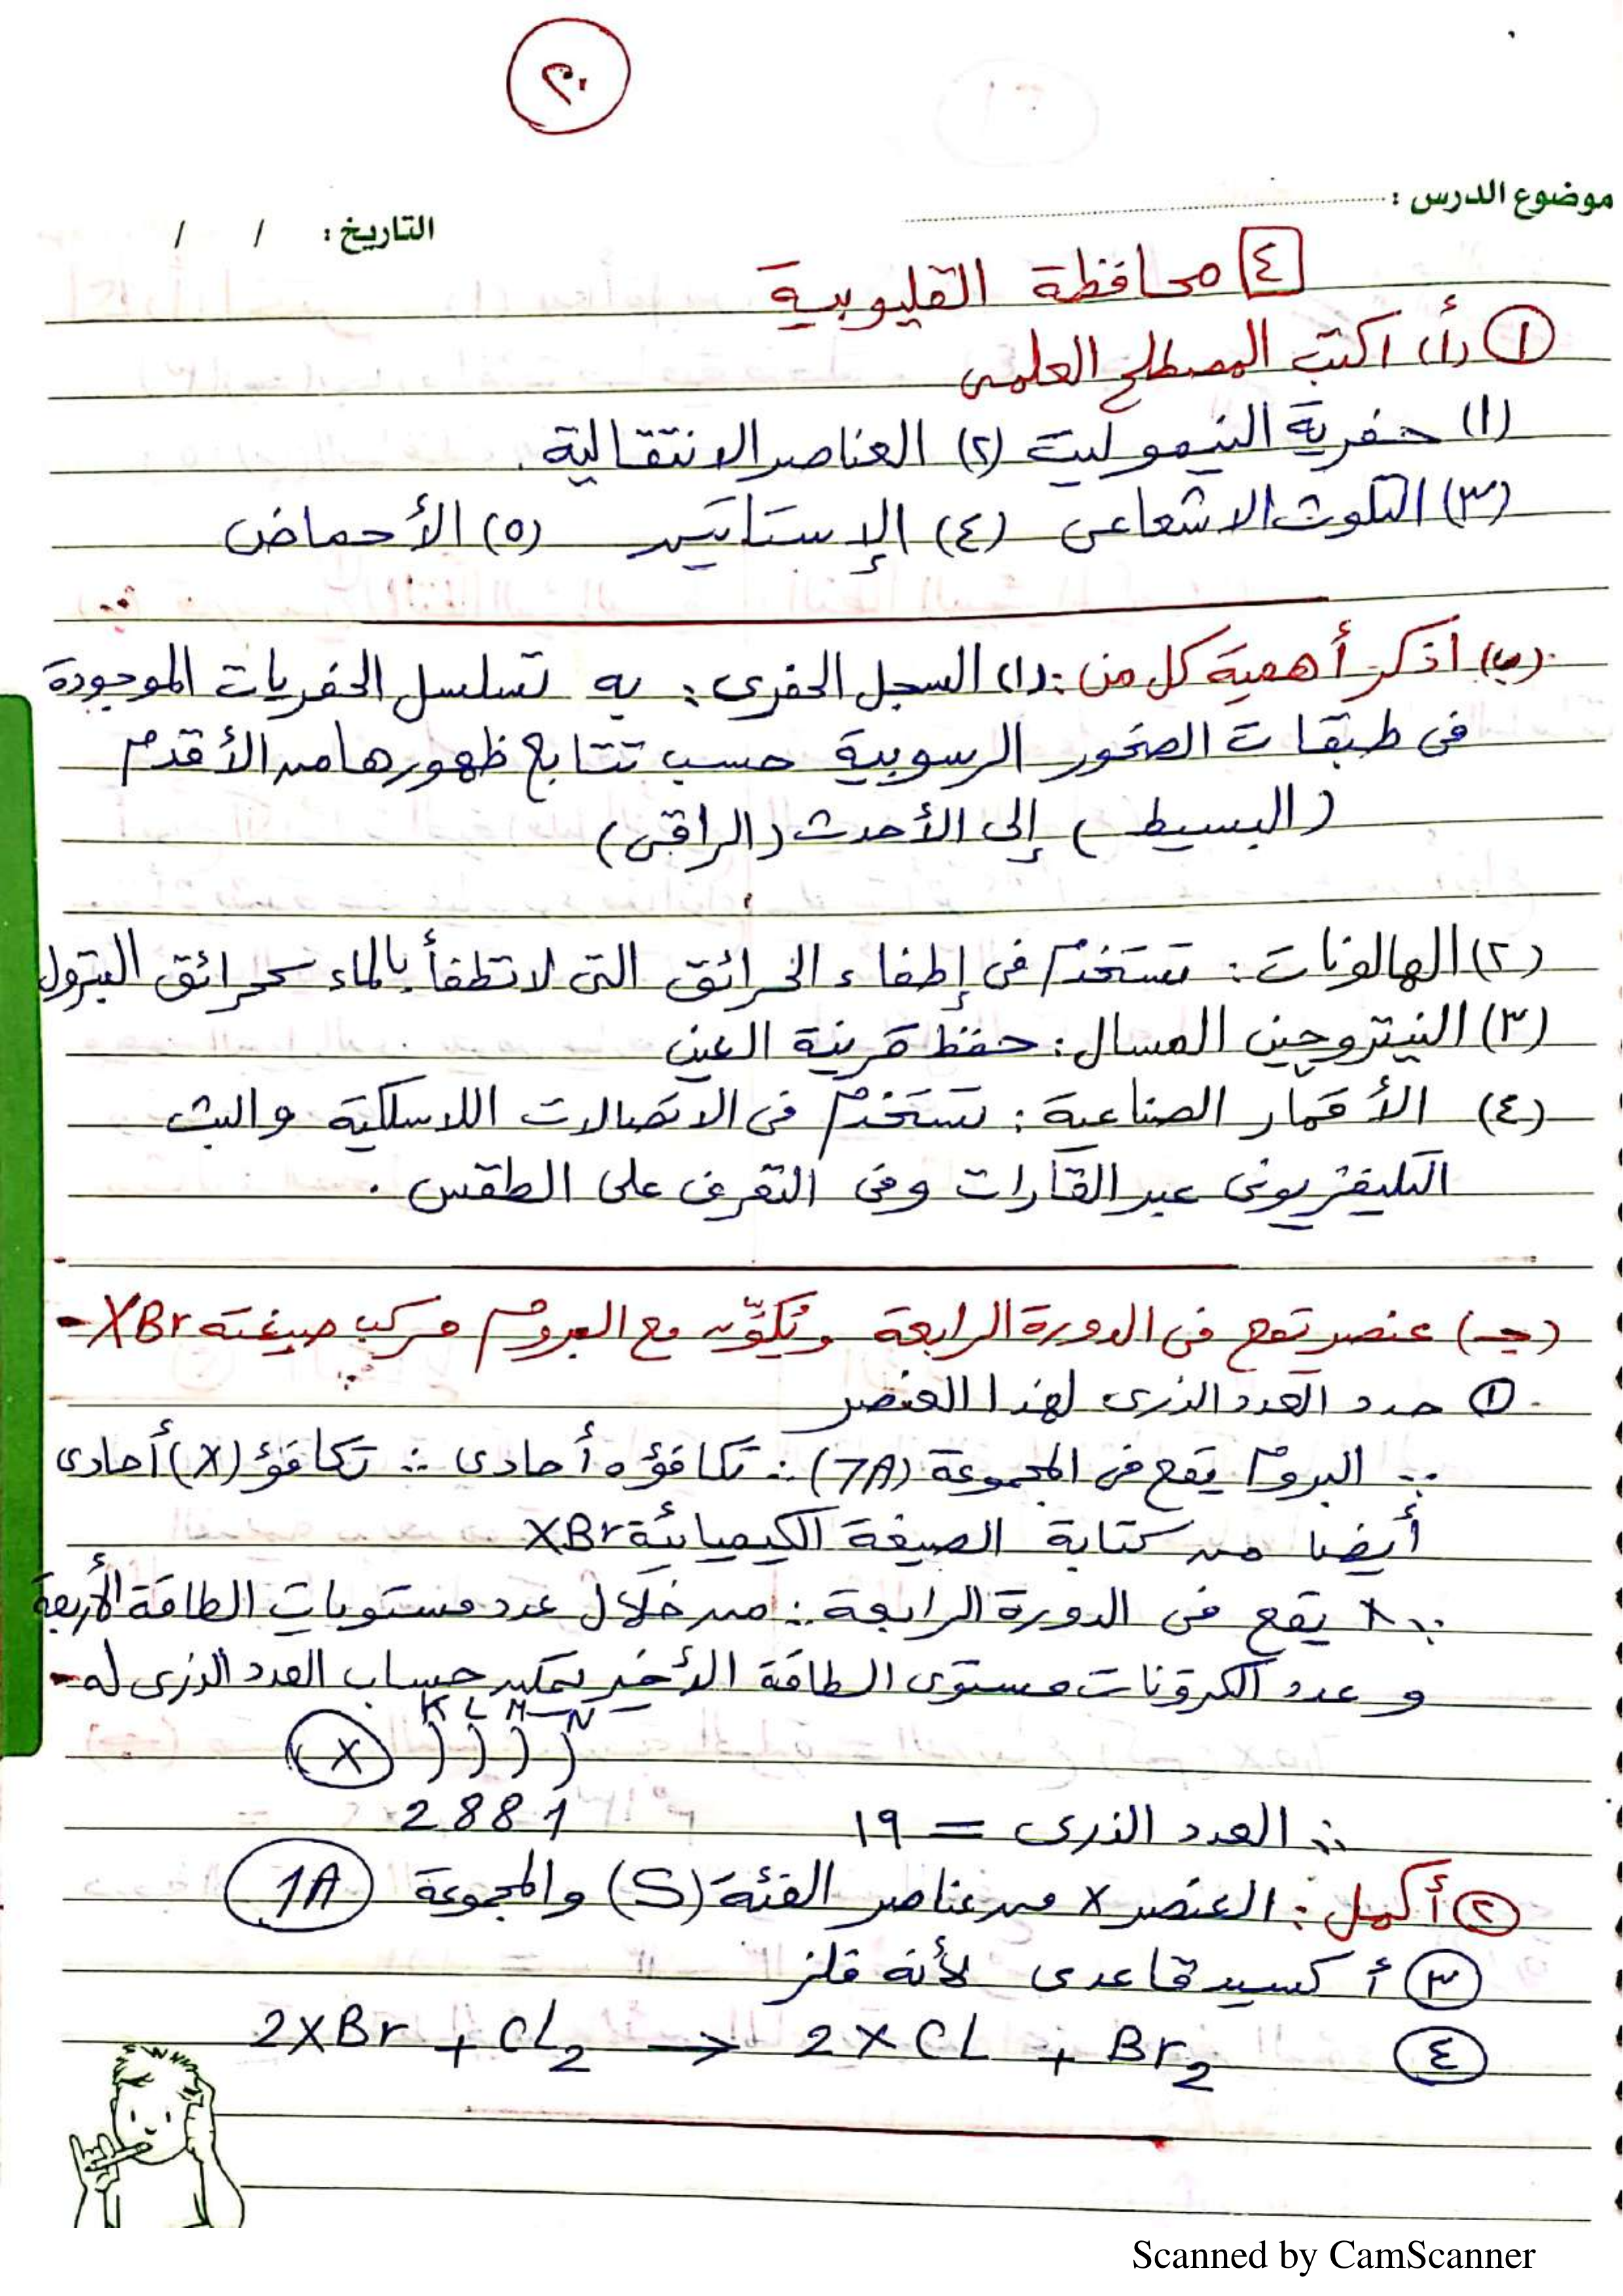 ٣٠
موضوع الدرس :
التاريخ : / /
٤ محافظة القليوبية
١ (أ) اكتب المصطلح العلمى
(١) حفرية النيموليت (٢) العناصر الانتقالية .
(٣) التلوث الاشعاعى (٤) الإستاتيسر (٥) الأحماض
(ب) اذكر أهمية كل من : (١) السجل الحفرى : به تسلسل الحفريات الموجودة
فى طبقات الصخور الرسوبية حسب تتابع ظهورها من الأقدم
(البسيط) إلى الأحدث (الراقى)
(٢) الهالونات : تستخدم فى إطفاء الحرائق التى لا تطفأ بالماء كحرائق البترول
(٣) النيتروجين المسال : حفظ قرنية العين
(٤) الأقمار الصناعية : تستخدم فى الاتصالات اللاسلكية والبث
التليفزيونى عبر القارات وفى التعرف على الطقس .
(جـ) عنصر تقع فى الدورة الرابعة وتكوّن مع البروم مركب صيغته XBr
١ حدد العدد الذرى لهذا العنصر
∵ البروم يقع فى المجموعة (7A) ∴ تكافؤه أحادى ∴ تكافؤ (X) أحادى
أيضا من كتابة الصيغة الكيميائية XBr
∵ X يقع فى الدورة الرابعة ∴ من خلال عدد مستويات الطاقة الأربعة
و عدد الكترونات مستوى الطاقة الأخير يمكن حساب العدد الذرى له
K L M N
X ) ) ) )
2 8 8 1
∴ العدد الذرى = ١٩
٢ أكمل : العنصر X من عناصر الفئة (S) والمجموعة 1A
٣ أكسيد قاعدى لأنه فلز
٤ 2XBr + CL2 → 2XCL + Br2
Scanned by CamScanner